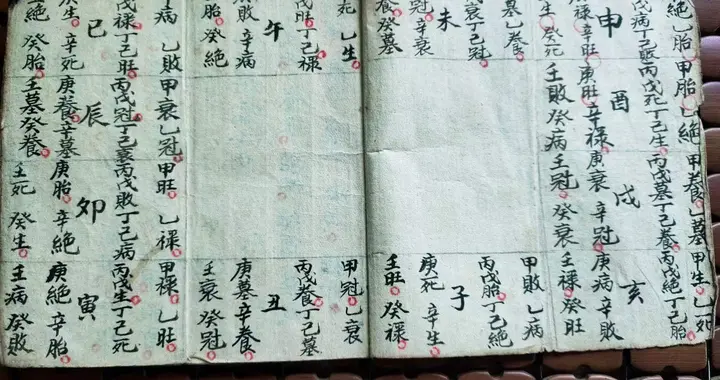 絕乙胎甲胎乙絕甲養乙墓甲生乙死
戊病丁己敗丙戊死丁己生丙戊墓丁己養丙戊絕丁己胎
申酉戌亥
祿辛旺庚旺辛祿庚衰辛冠庚病辛敗
生癸死壬敗癸病壬冠癸衰壬祿癸旺
乙養
戊衰丁己冠
未
冠辛衰
養癸墓
甲敗乙病
丙戊胎丁己絕
子
庚死辛生
壬旺癸祿
死乙生
戊旺丁己祿
午
敗辛病
胎癸絕
甲冠乙衰
丙戊養丁己墓
丑
庚墓辛養
壬衰癸冠
病乙敗甲衰乙冠甲旺乙祿甲祿乙旺
戊祿丁己旺丙戊冠丁己衰丙戊敗丁己病丙戊生丁己死
巳辰卯寅
生辛死庚養辛墓庚胎辛絕庚絕辛胎
癸胎壬墓癸養壬死癸生壬病癸敗